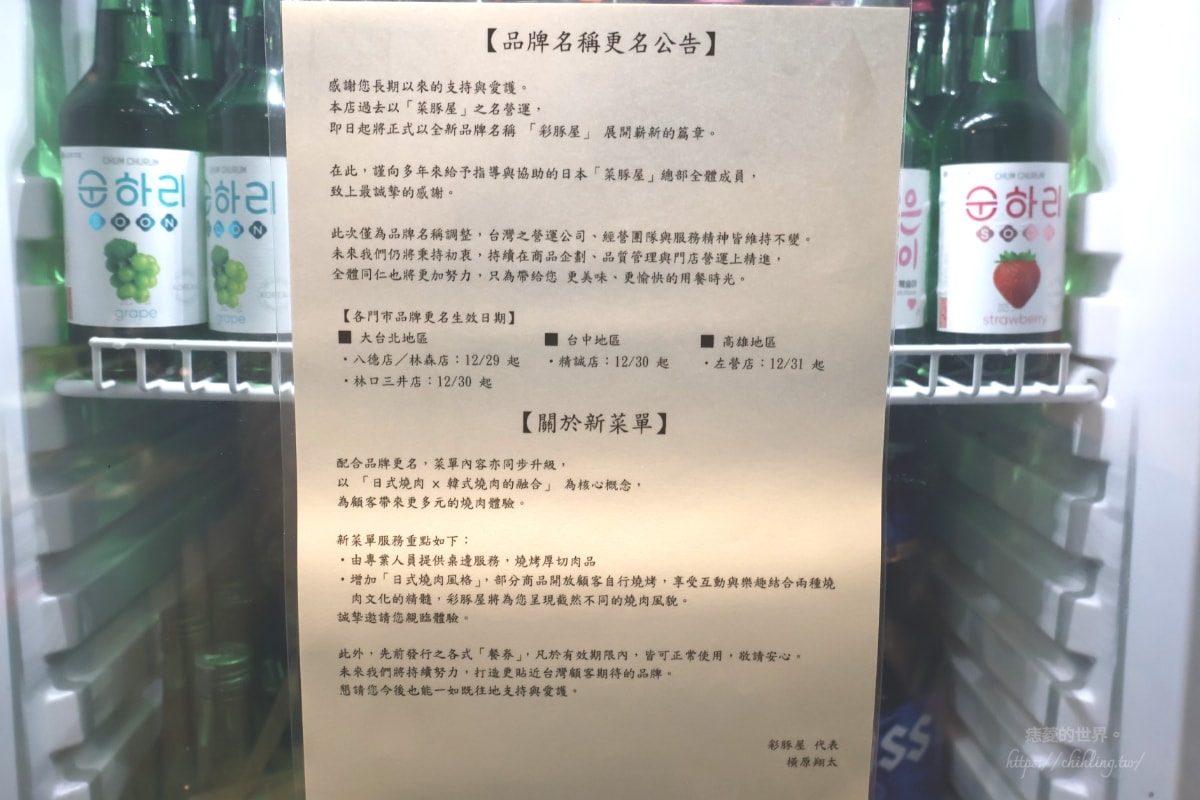 【品牌名稱更名公告】
感謝您長期以來的支持與愛護。
本店過去以「菜豚屋」之名營運，
即日起將正式以全新品牌名稱 「彩豚屋」 展開嶄新的篇章。
在此，謹向多年來給予指導與協助的日本「菜豚屋」總部全體成員，
致上最誠摯的感謝。
此次僅為品牌名稱調整，台灣之營運公司、經營團隊與服務精神皆維持不變。
未來我們仍將秉持初衷，持續在商品企劃、品質管理與門店營運上精進，
全體同仁也將更加努力，只為帶給您 更美味、更愉快的用餐時光。
【各門市品牌更名生效日期】
■ 大台北地區
・八德店／林森店：12/29 起
・林口三井店：12/30 起
■ 台中地區
・精誠店：12/30 起
■ 高雄地區
・左營店：12/31 起
【關於新菜單】
配合品牌更名，菜單內容亦同步升級，
以 「日式燒肉 × 韓式燒肉的融合」 為核心概念，
為顧客帶來更多元的燒肉體驗。
新菜單服務重點如下：
・由專業人員提供桌邊服務，燒烤厚切肉品
・增加「日式燒肉風格」，部分商品開放顧客自行燒烤，享受互動與樂趣結合兩種燒
肉文化的精髓，彩豚屋將為您呈現截然不同的燒肉風貌。
誠摯邀請您親臨體驗。
此外，先前發行之各式「餐券」，凡於有效期限內，皆可正常使用，敬請安心。
未來我們將持續努力，打造更貼近台灣顧客期待的品牌。
懇請您今後也能一如既往地支持與愛護。
彩豚屋 代表
横原翔太
CHUM CHURUM
순하리
SOON
grape
CHUM CHURUM
순하리
grape
CHUM CHURUM
순하리
strawberry
痞菱的世界。
https://chihling.tw/